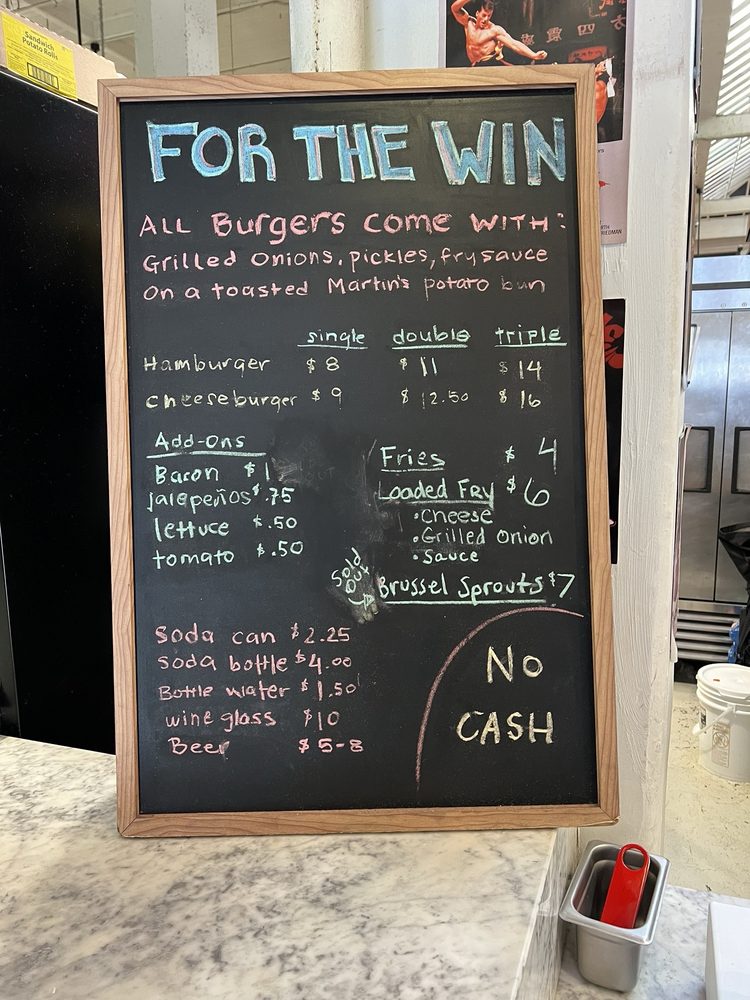 Sandwich
Potato Rolls
FOR THE WIN
ALL Burgers come WITH:
Grilled Onions, pickles, fry sauce
On a toasted Martin's potato bun
single double triple
Hamburger $8 $11 $14
cheeseburger $9 $12.50 $16
Add-ons
Bacon $1
jalepeños $.75
lettuce $.50
tomato $.50
Fries $4
Loaded Fry $6
• Cheese
• Grilled Onion
• Sauce
Sold Out
Brussel Sprouts $7
Soda can $2.25
Soda bottle $4.00
Bottle water $1.50
wine glass $10
Beer $5-8
NO
CASH